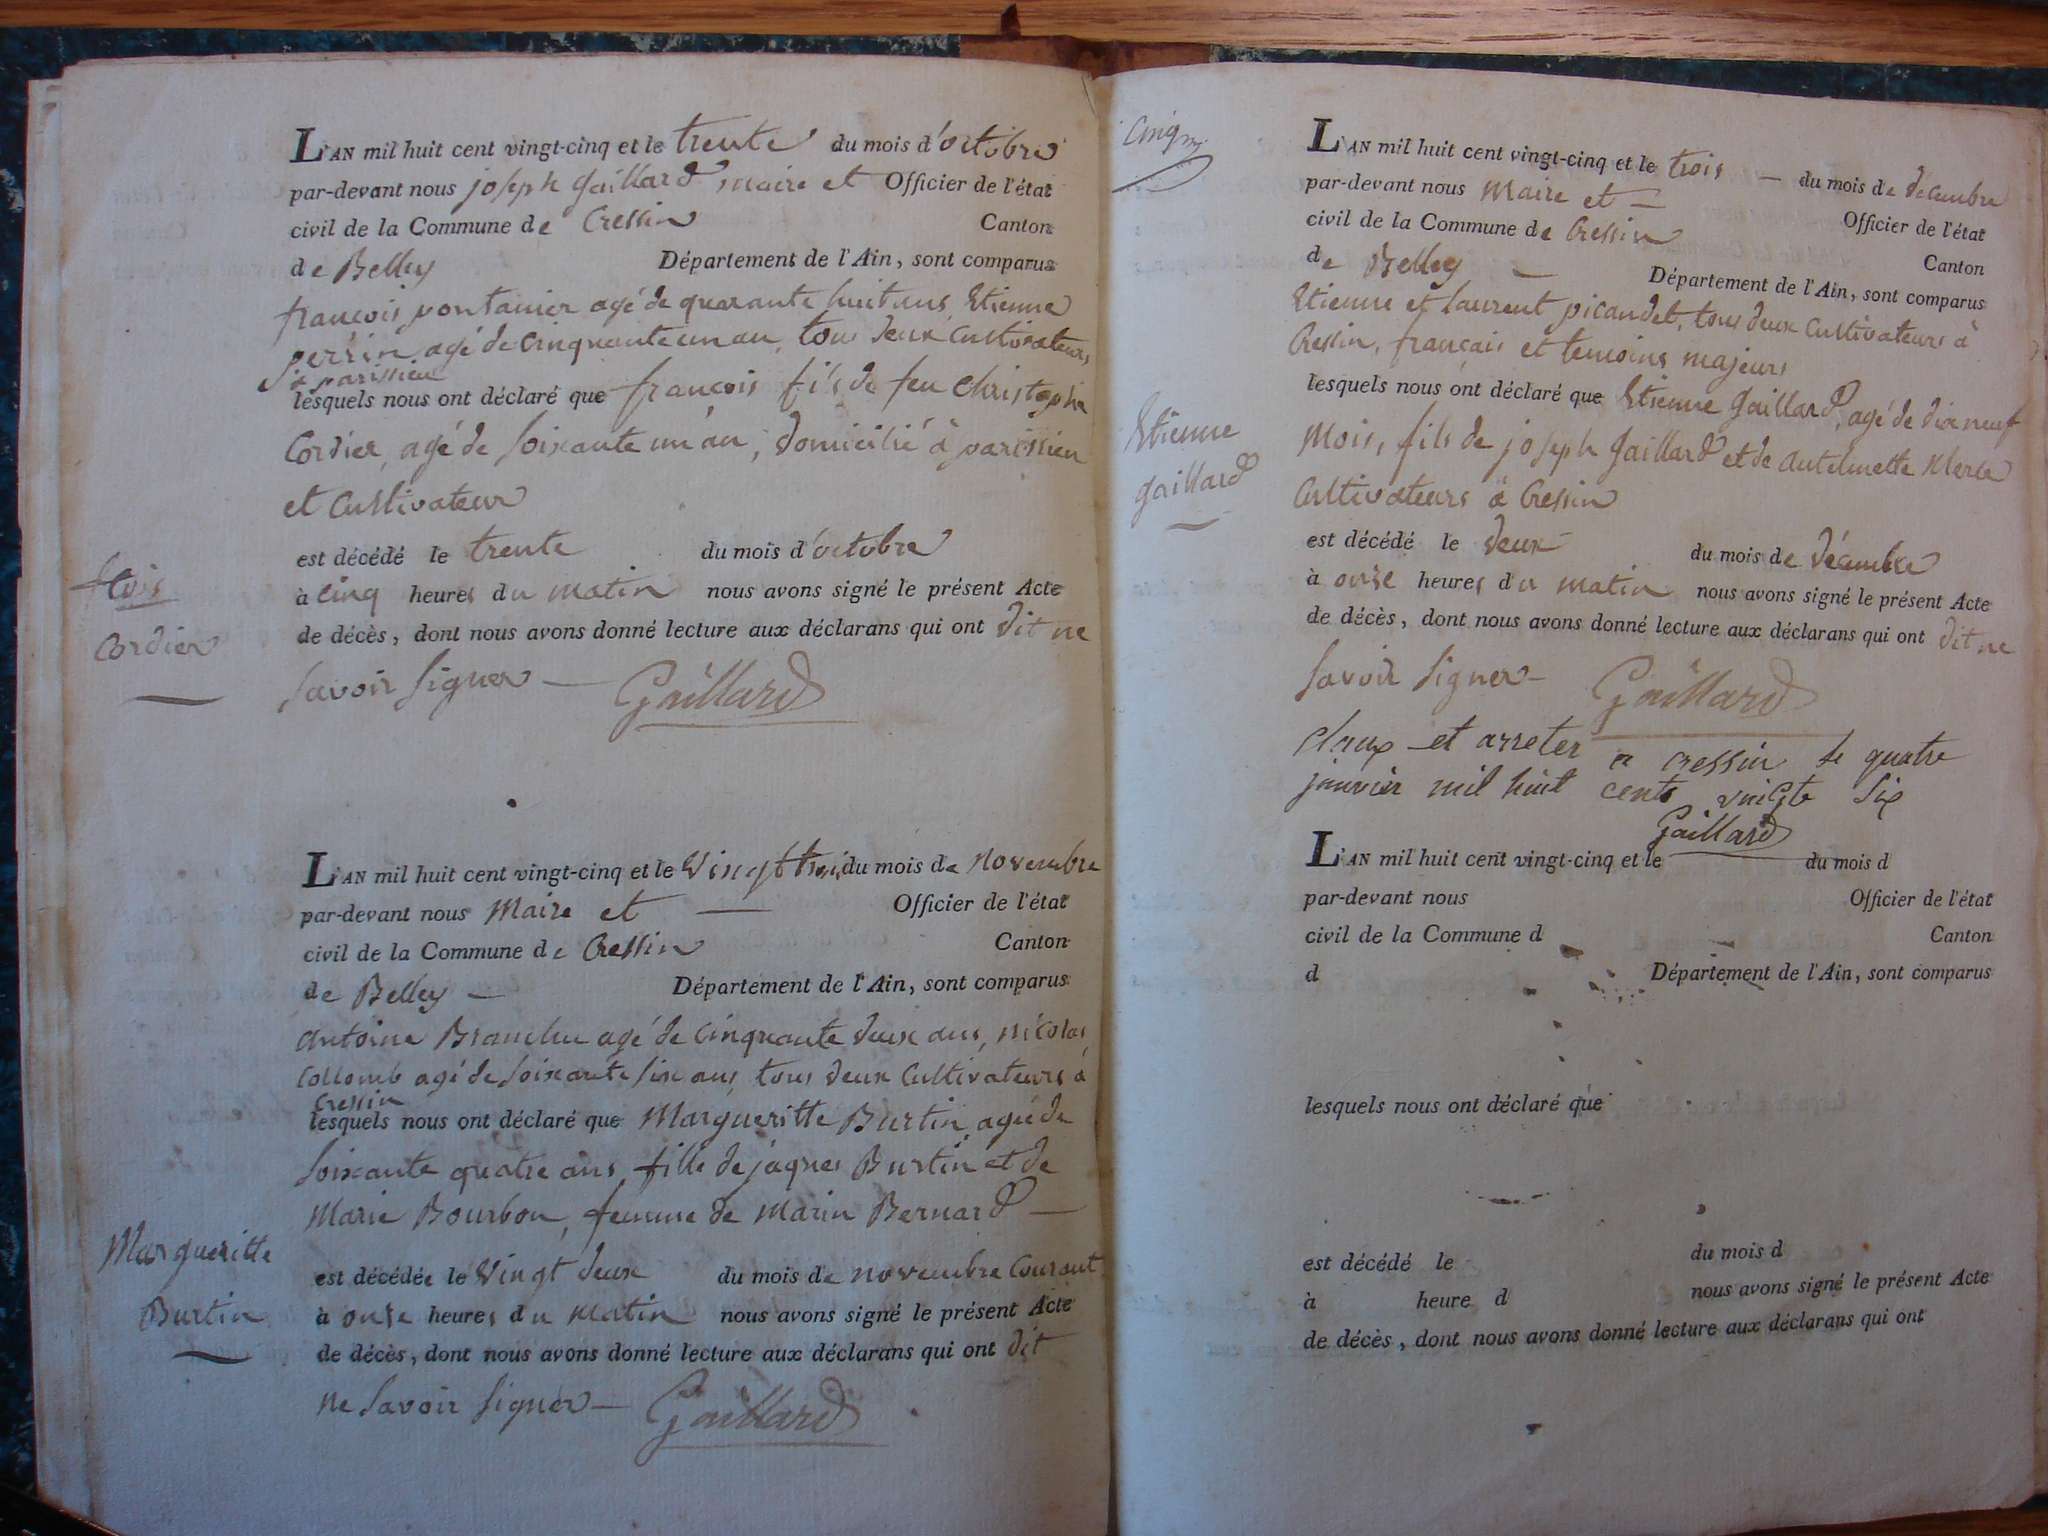 L'AN mil huit cent vingt-cinq et le trente du mois d'octobre
par-devant nous joseph gaillard maire et Officier de l'état
civil de la Commune de Cressin Canton
de Belley Département de l'Ain, sont comparus
françois pontanier agé de quarante huit ans, Etienne
perrin agé de cinquante un an, tous deux cultivateurs
à parissieu
lesquels nous ont déclaré que françois fils de feu Christophe
Cordier, agé de soixante un an, domicilié à parissieu
et cultivateur
est décédé le trente du mois d'octobre
à cinq heures du matin nous avons signé le présent Acte
de décès, dont nous avons donné lecture aux déclarans qui ont dit ne
savoir signer — Gaillard
fcois
Cordier
L'AN mil huit cent vingt-cinq et le vingt trois du mois de novembre
par-devant nous Maire et — Officier de l'état
civil de la Commune de Cressin Canton
de Belley — Département de l'Ain, sont comparus
antoine Branchu agé de cinquante deux ans, nicolas
Collomb agé de soixante six ans, tous deux cultivateurs à
Cressin
lesquels nous ont déclaré que Margueritte Burtin, agée de
soixante quatre ans, fille de jaques Burtin et de
Marie Bourbon, femme de Marin Bernard —
est décédée le vingt deux du mois de novembre courant
à onse heures du matin nous avons signé le présent Acte
de décès, dont nous avons donné lecture aux déclarans qui ont dit
ne savoir signer — Gaillard
Margueritte
Burtin
L'AN mil huit cent vingt-cinq et le trois — du mois de décembre
par-devant nous Maire et — Officier de l'état
civil de la Commune de Cressin Canton
de Belley — Département de l'Ain, sont comparus
Etienne et Laurent picandet, tous deux cultivateurs à
Cressin, français et temoins majeurs
lesquels nous ont déclaré que Etienne gaillard, agé de dix neuf
mois, fils de joseph gaillard et de antelmette Merle
cultivateurs à Cressin
est décédé le deux du mois de décembre
à onse heures du matin nous avons signé le présent Acte
de décès, dont nous avons donné lecture aux déclarans qui ont dit ne
savoir signer — Gaillard
Etienne
gaillard
claux et arreter a cressin le quatre
janvier mil huit cents vuigte six
Gaillard
L'AN mil huit cent vingt-cinq et le du mois d
par-devant nous Officier de l'état
civil de la Commune d Canton
d Département de l'Ain, sont comparus
lesquels nous ont déclaré que
est décédé le du mois d
à heure d nous avons signé le présent Acte
de décès, dont nous avons donné lecture aux déclarans qui ont